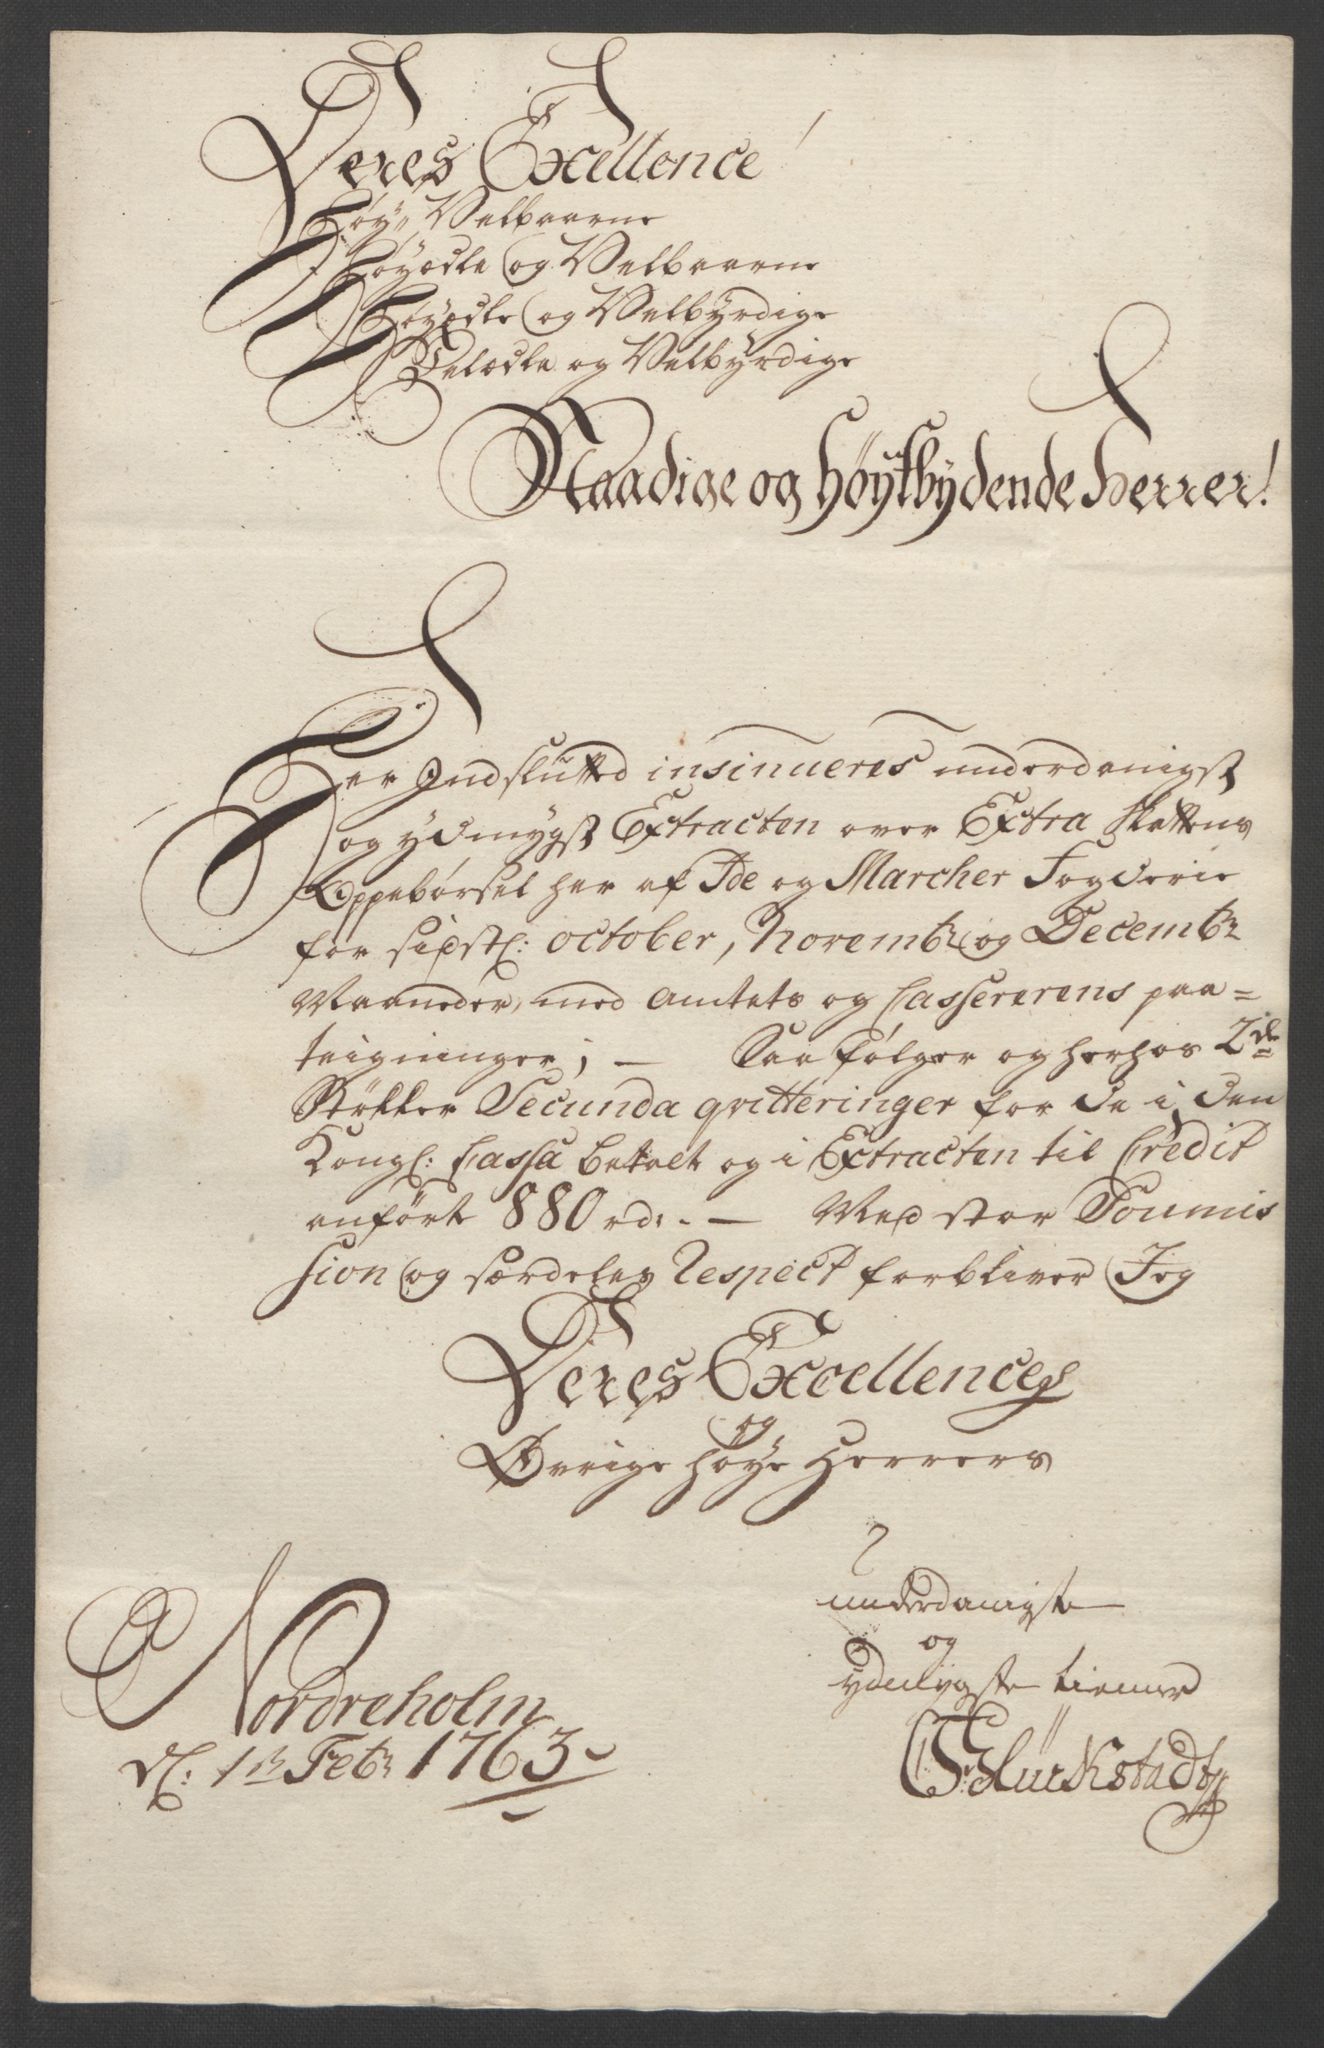 Deres Excellence!
Høy Velbaarne
Høyædle og Velbaarne
Høyædle og Velbyrdige
Velædle og Velbyrdige
Naadige og Høystbydende Herrer!
Her Indslutted insinueres underdanigst
og ydmygst Extracten over Extra Skattens
Oppebørsel her af Ide og Marcher Fogderie
for sidstl: october, Novembr og Decembr
Maaneder, med Amtets og Cassererens paa=
teigninger; — Saa følger og herhos 2de
Støkker Secunda qvitteringer for de i den
Kongl: Cassa betalt og i Extracten til Credit
anførte 880 rd: — Med stor Soumis
sion og særdeles Respect forbliver Jeg
Deres Excellences
og
Øvrige høye Herrers
underdanigste
og
ydmygste tienner
Nordreholm
d: 1te Febr 1763
Glückstadt